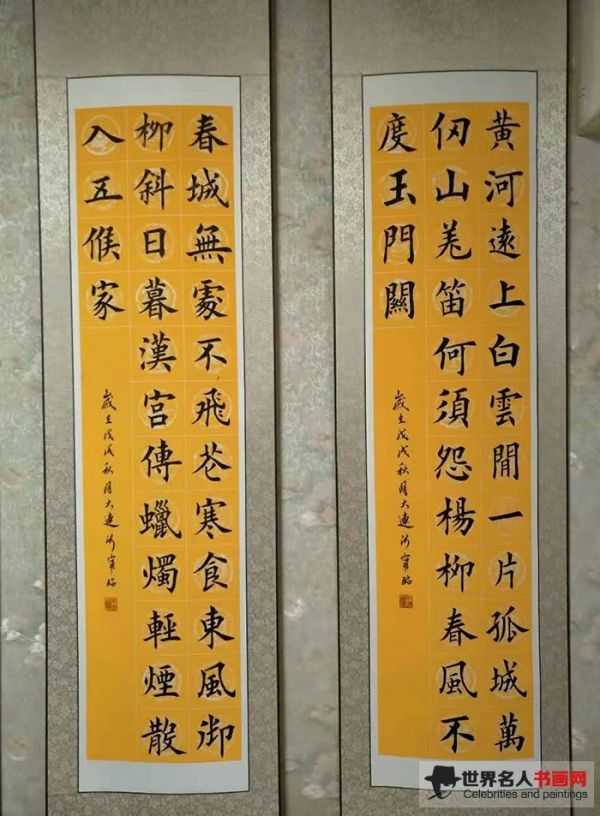 黄河遠上白雲間一片孤城萬
仞山羌笛何須怨楊柳春風不
度玉門關
歲在戊戌秋月大連
春城無處不飛花寒食東風御
柳斜日暮漢宮傳蠟燭輕煙散
入五侯家
歲在戊戌秋月大連
世界名人书画网
Celebrities and paintings